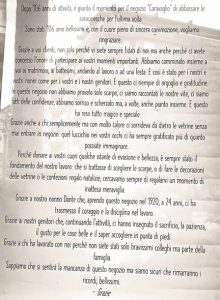 Dopo 106 anni di attività, è giunto il momento per il negozio "Caravaglio" di abbassare le
saracinesche per l'ultima volta.
Sono stati 106 anni bellissimi e, con il cuore pieno di sincera commozione, vogliamo
ringraziare:
Grazie a voi clienti, non solo perché vi siete sempre fidati di noi ma anche perché ci avete
concesso l'onore di partecipare ai vostri momenti importanti. Abbiamo camminato insieme a
voi ai matrimoni, ai battesimi, andando al lavoro o ad una festa. E così è stato per i nostri e
vostri nonni come per i vostri e i nostri genitori. E questo ci riempie di orgoglio e gratitudine.
In questo negozio non abbiamo provato solo scarpe, ci siamo raccontati le nostre vite, ci siamo
fatti delle confidenze, abbiamo sorriso e scherzato ma, a volte, anche pianto insieme. E questo
ha reso tutto magico e speciale.
Grazie anche a chi semplicemente ma con molto calore ci sorrideva da dietro le vetrine senza
mai entrare in negozio: quel luccichio nei vostri occhi ci ha sempre gratificato più di quanto
possiate immaginare.
Perché donare ai vostri cuori qualche istante di evasione e bellezza, è sempre stato il
fondamento del nostro lavoro: che si trattasse di scegliere le scarpe, o di fare le decorazioni
delle vetrine o le confezioni regalo natalizie, cercavamo sempre di regalarvi un momento di
inattesa meraviglia.
Grazie a nostro nonno Dante che, aprendo questo negozio nel 1920, a 24 anni, ci ha
trasmesso il coraggio e la disciplina nel lavoro.
Grazie ai nostri genitori che, continuando l'attività, ci hanno insegnato il sacrificio, la pazienza,
il gusto per le cose belle e il saper accogliere in punta di piedi.
Grazie a chi ha lavorato con noi perché non siete stati solo bravissimi colleghi ma parte della
famiglia.
Sappiamo che si sentirà la mancanza di questo negozio ma siamo sicuri che rimarranno i
ricordi, bellissimi.
- Grazie -